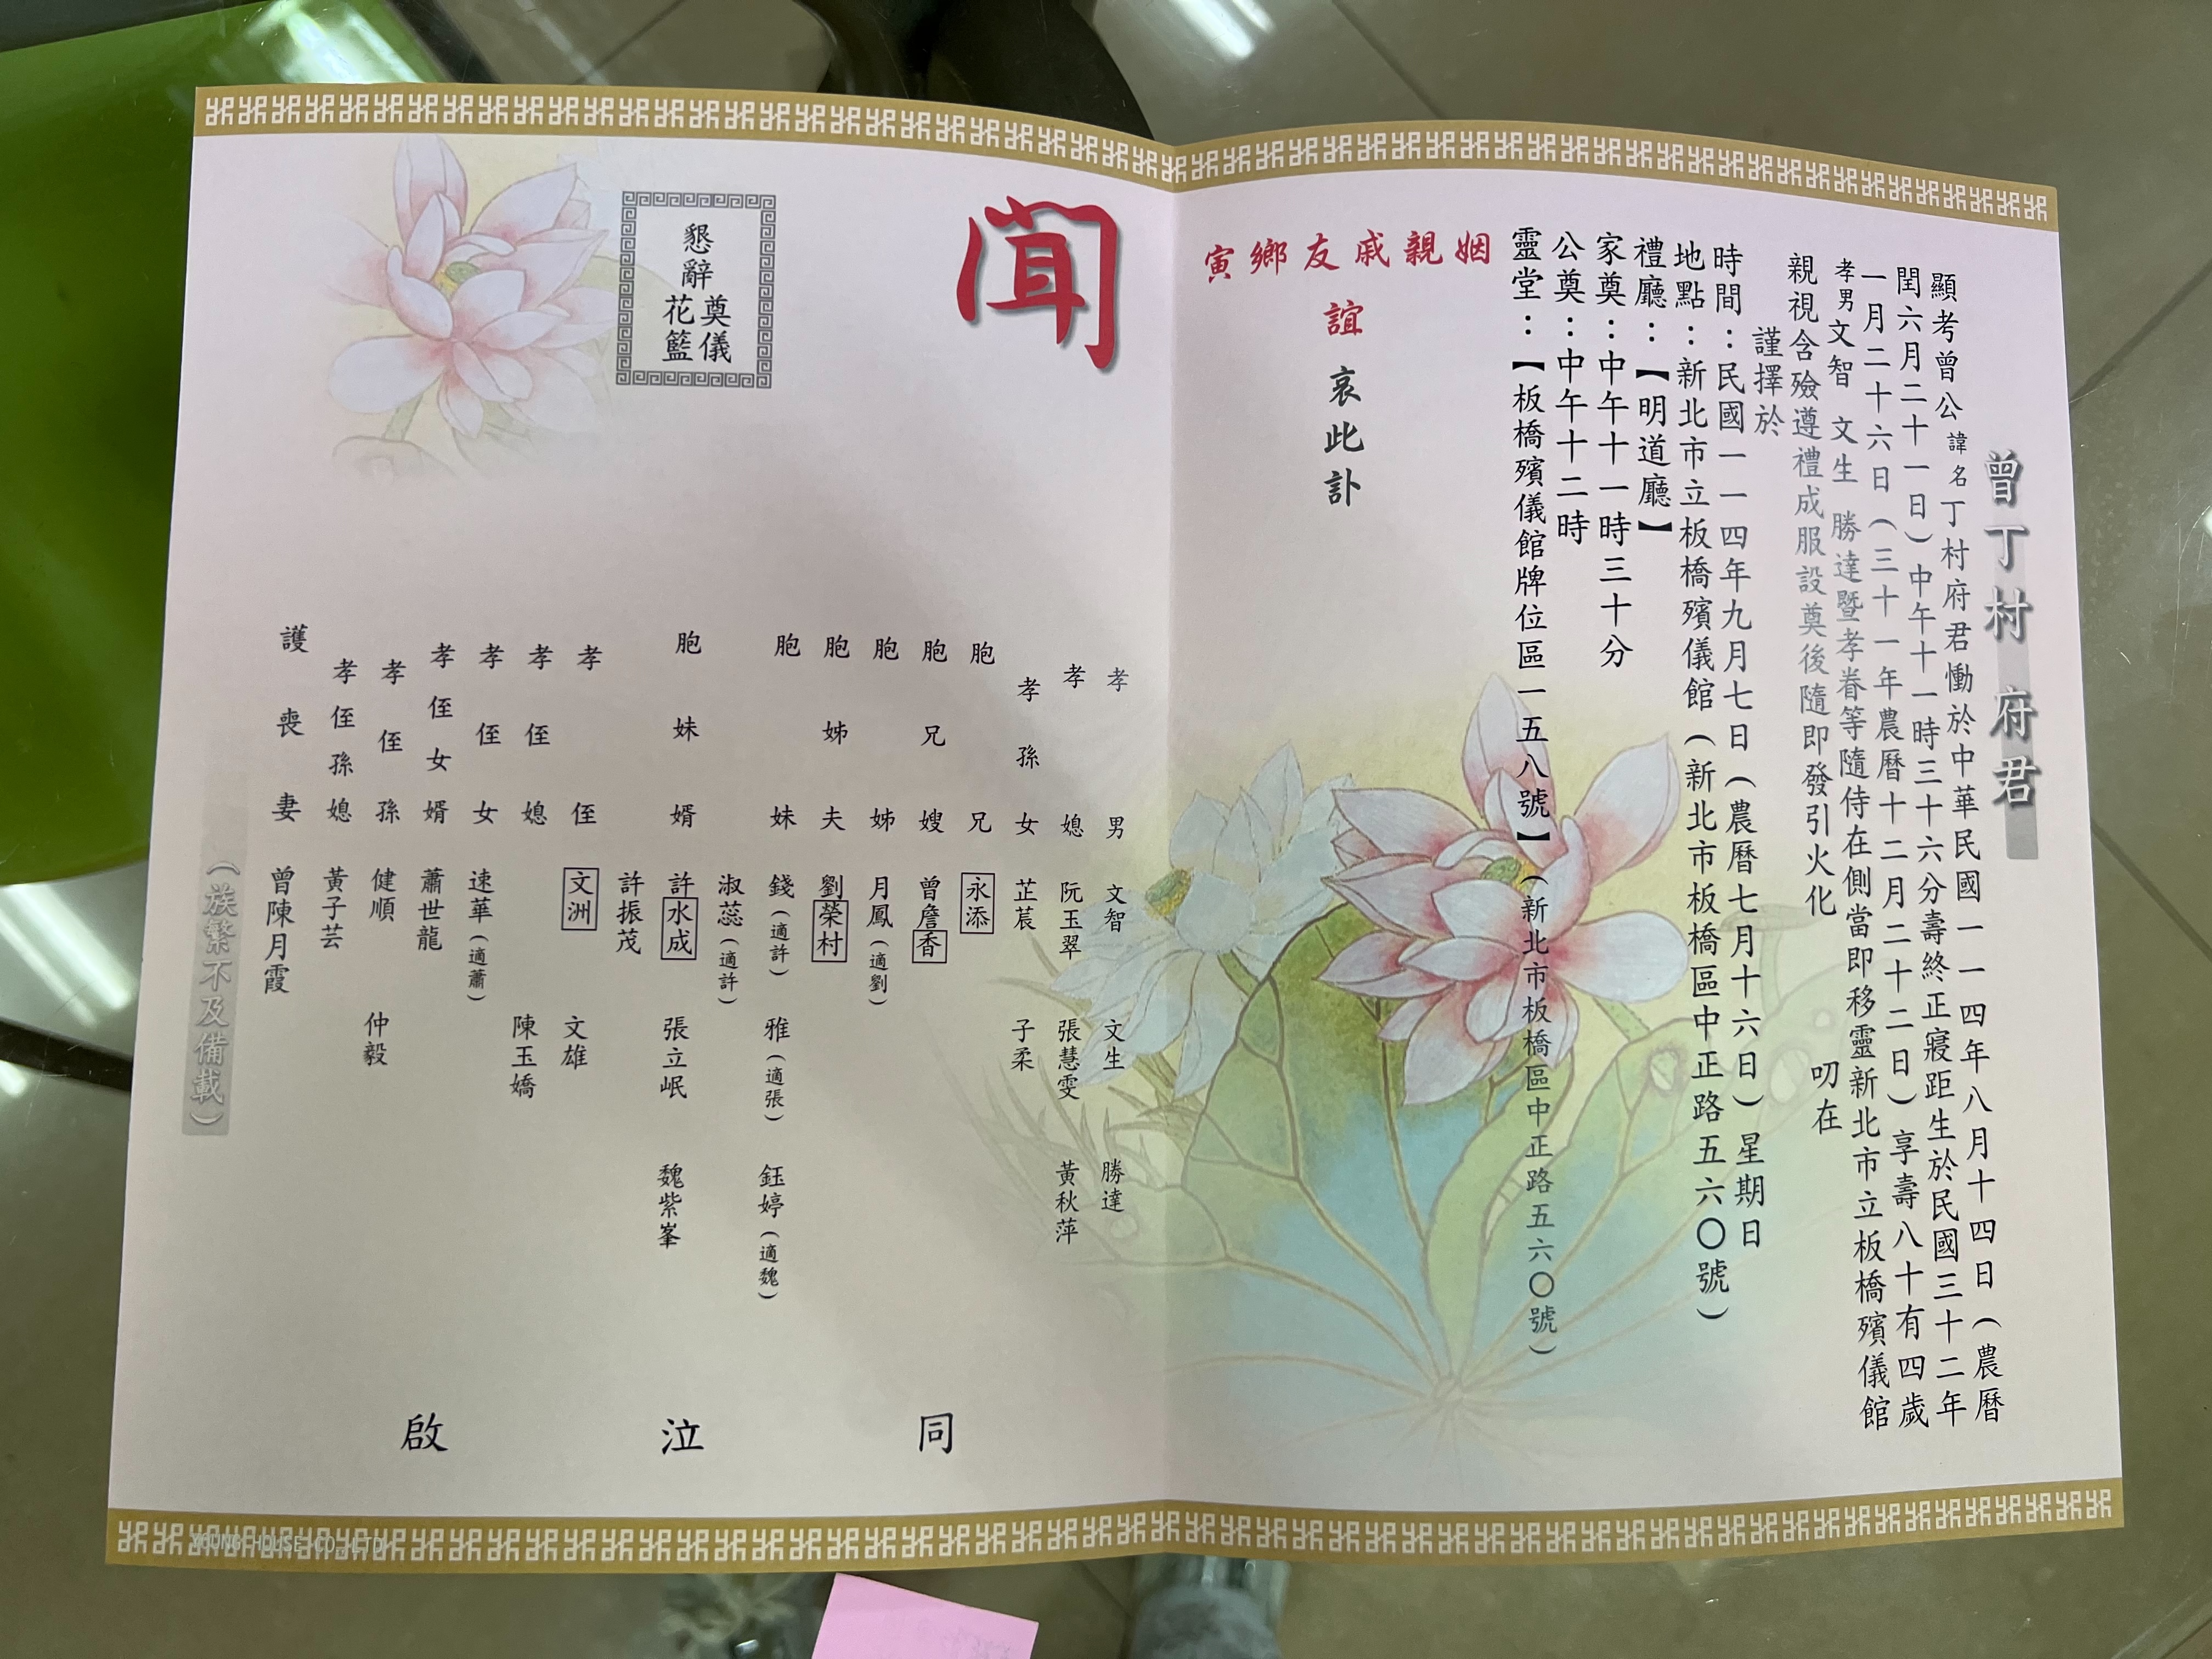 曾丁村 府君
顯考曾公諱名丁村府君慟於中華民國一一四年八月十四日(農曆
閏六月二十一日)中午十一時三十六分壽終正寢距生於民國三十二年
一月二十六日(三十一年農曆十二月二十二日)享壽八十有四歲
孝男文智 文生 勝達暨孝眷等隨侍在側當即移靈新北市立板橋殯儀館
親視含殮遵禮成服設奠後隨即發引火化 叨在
謹擇於
時間:民國一一四年九月七日(農曆七月十六日)星期日
地點:新北市立板橋殯儀館(新北市板橋區中正路五六〇號)
禮廳:【明道廳】
家奠:中午十一時三十分
公奠:中午十二時
靈堂:【板橋殯儀館牌位區一五八號】(新北市板橋區中正路五六〇號)
姻親戚友鄉寅
誼哀此訃
聞
懇辭
奠儀
花籃
孝男 文智 文生 勝達
孝媳 阮玉翠 張慧雯 黃秋萍
孝孫女 芷萇 子柔
胞兄 永添
胞兄嫂 曾詹香
胞姊 月鳳(適劉)
胞姊夫 劉榮村
胞妹 錢(適許) 雅(適張) 鈺婷(適魏)
淑蕊(適許)
胞妹婿 許水成 張立岷 魏紫峯
許振茂
孝侄 文洲 文雄
孝侄媳 陳玉嬌
孝侄女 速華(適蕭)
孝侄女婿 蕭世龍
孝侄孫 健順 仲毅
孝侄孫媳 黃子芸
護喪妻 曾陳月霞
(族繁不及備載)
同泣啟
YOUNG HOUSE CO., LTD